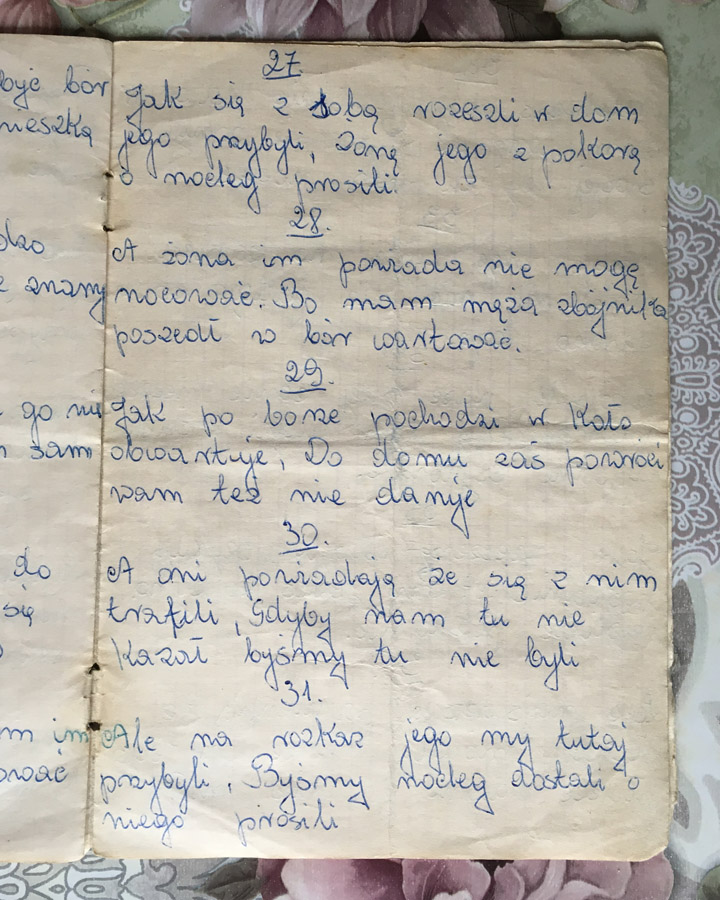 być bór
nieszką
dzo
znamy
go nie
sam
do
się
m im
ować
27.
Jak się z sobą rozeszli w dom
jego przybyli, Żonę jego z pokorą
o nocleg prosili.
28.
A żona im powiada nie mogę
nocować. Bo mam męża zbójnika
poszedł w bór wartować.
29.
Jak po borze pochodzi w Koło
obwartuje, Do domu zaś powróci
wam też nie daruje
30.
A oni powiadają że się z nim
trafili, Gdyby nam tu nie
Kazał byśmy tu nie byli
31.
Ale na rozkaz jego my tutaj
przybyli, Byśmy nocleg dostali o
niego prosili